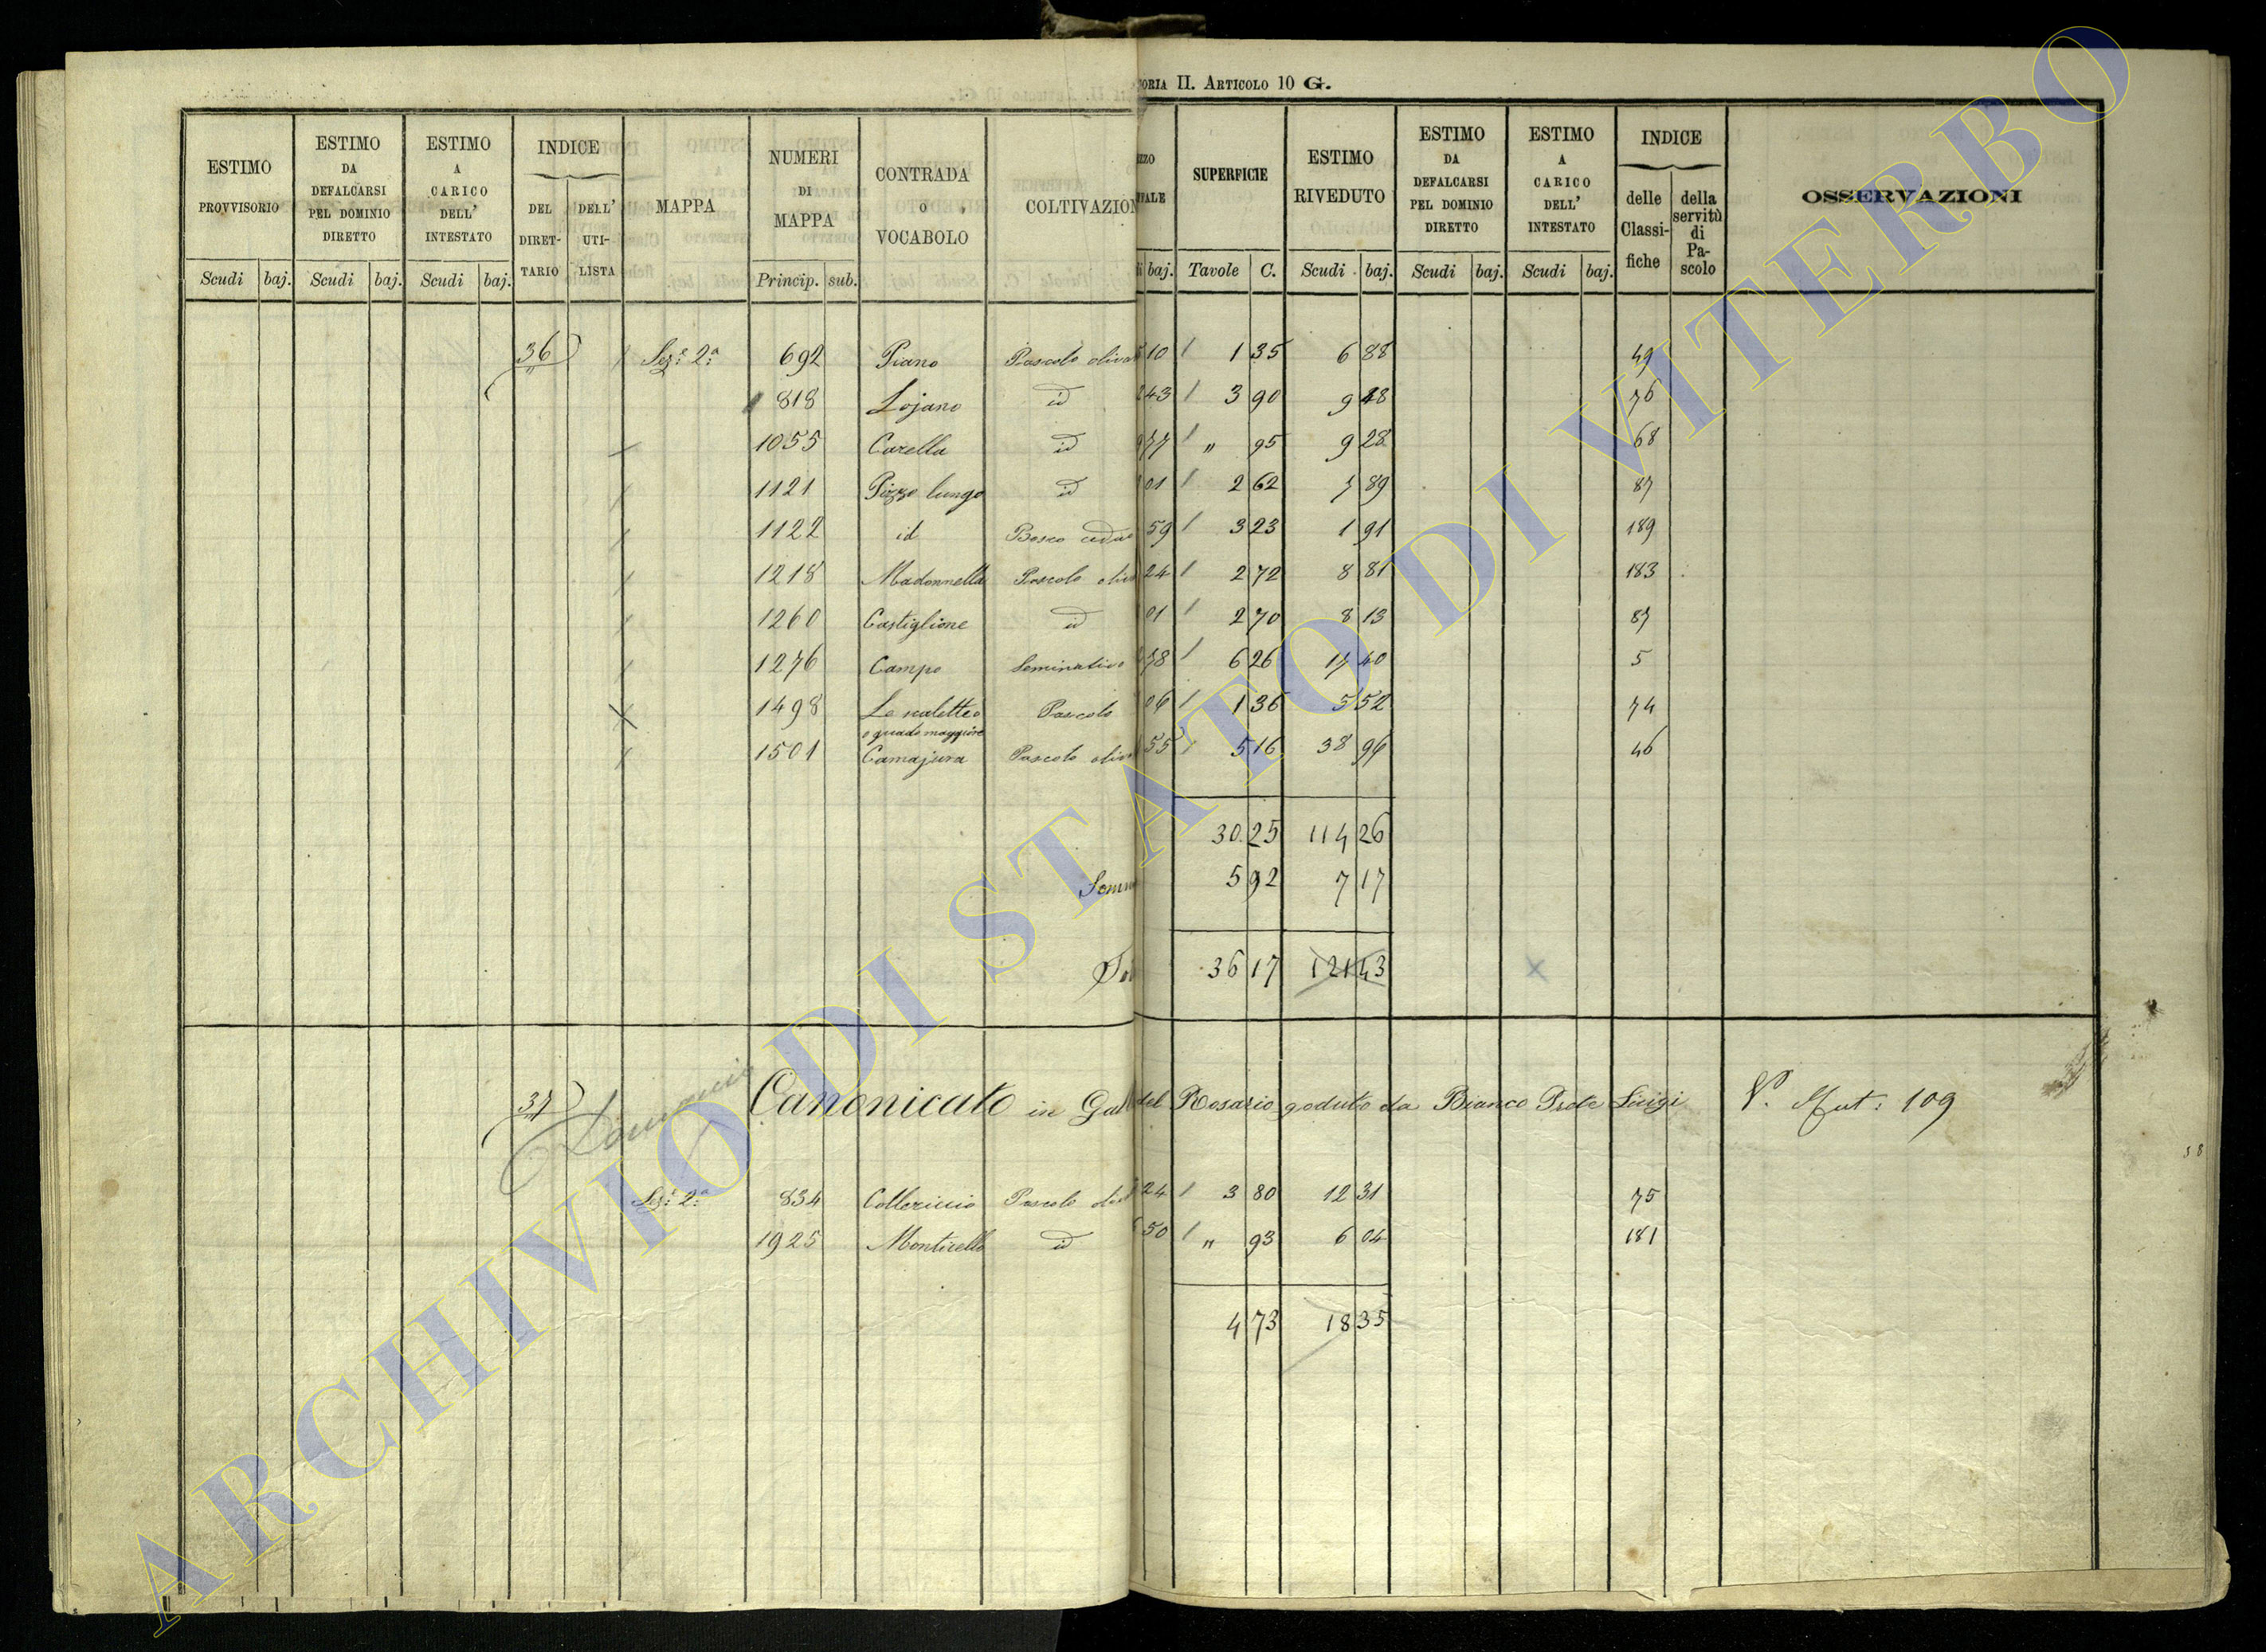 ORIA II. ARTICOLO 10 G.
ESTIMO PROVVISORIO Scudi baj. | ESTIMO DA DEFALCARSI PEL DOMINIO DIRETTO Scudi baj. | ESTIMO A CARICO DELL' INTESTATO Scudi baj. | INDICE DEL DIRET-TARIO | DELL' UTI-LISTA | MAPPA | NUMERI DI MAPPA Princip. sub. | CONTRADA o VOCABOLO | COLTIVAZION | ZZO VALE baj. | SUPERFICIE Tavole C. | ESTIMO RIVEDUTO Scudi baj. | ESTIMO DA DEFALCARSI PEL DOMINIO DIRETTO Scudi baj. | ESTIMO A CARICO DELL' INTESTATO Scudi baj. | INDICE delle Classi-fiche | della servitù di Pa-scolo | OSSERVAZIONI
36 Sez.e 2.a 692 Piano Pascolo oliva 10 1 35 6 88 49
818 Lojano id 43 3 90 9 48 76
1055 Carella id 77 " 95 9 28 68
1121 Pizzo lungo id 01 2 62 7 89 87
1122 id Bosco ceduo 59 3 23 1 91 189
1218 Madonnella Pascolo oliv 24 2 72 8 81 183
1260 Castiglione id 01 2 70 8 13 87
1276 Campo Seminativo 78 6 26 17 40 5
1498 Le Pascolo 06 1 36 5 52 74
o guado maggiore
1501 Camajura Pascolo oliv 55 5 16 38 96 46
30 25 114 26
Somm 5 92 7 17
To 36 17 121 43
37 Demanio Canonicato in Gal del Rosario goduto da Bianco Prete Luigi V. Mut: 109
Sez.e 2.a 834 Collericcio Pascolo oliv 24 3 80 12 31 75
1925 Monticello id 50 " 93 6 04 181
4 73 18 35
ARCHIVIO DI STATO DI VITERBO